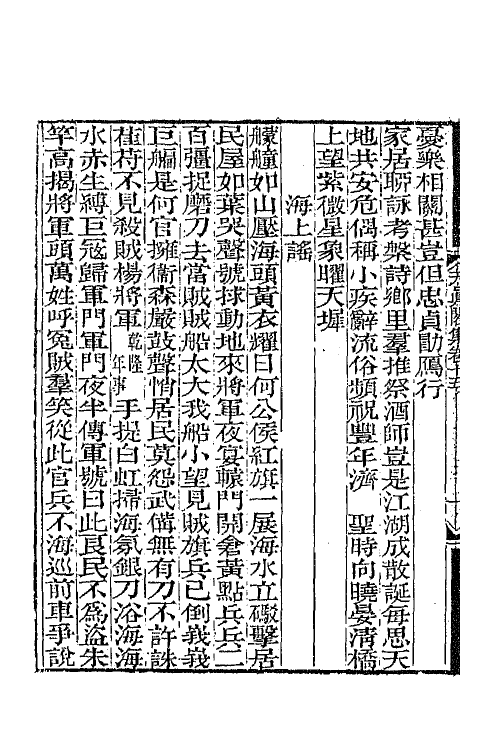 憂樂相關甚豈但忠貞勛鴈行
家居聊詠考槃詩鄉里羣推祭酒師豈是江湖成散誕每思天
地共安危偶稱小疾辭流俗頻祝豐年濟　聖時向曉晏清橋
上望紫微星象曜天墀
海上謠
艨艟如山壓海頭黃衣耀日何公侯紅旗一展海水立礮擊居
民屋如葉哭聲號捄動地來將軍夜宴轅門開倉黃點兵兵二
百彊捉磨刀去當賊賊船太大我船小望見賊旗兵已倒義義
巨艑是何官擁衞森嚴鼓聲悄居民莫怨武備無有刀不許誅
萑苻不見殺賊楊將軍乾隆年事手提白虹掃海氛銀刀浴海海
水赤坐縛巨寇歸軍門軍門夜半傳軍號曰此良民不爲盜朱
竿高揭將軍頭萬姓呼冤賊羣笑從此官兵不海巡前車爭說